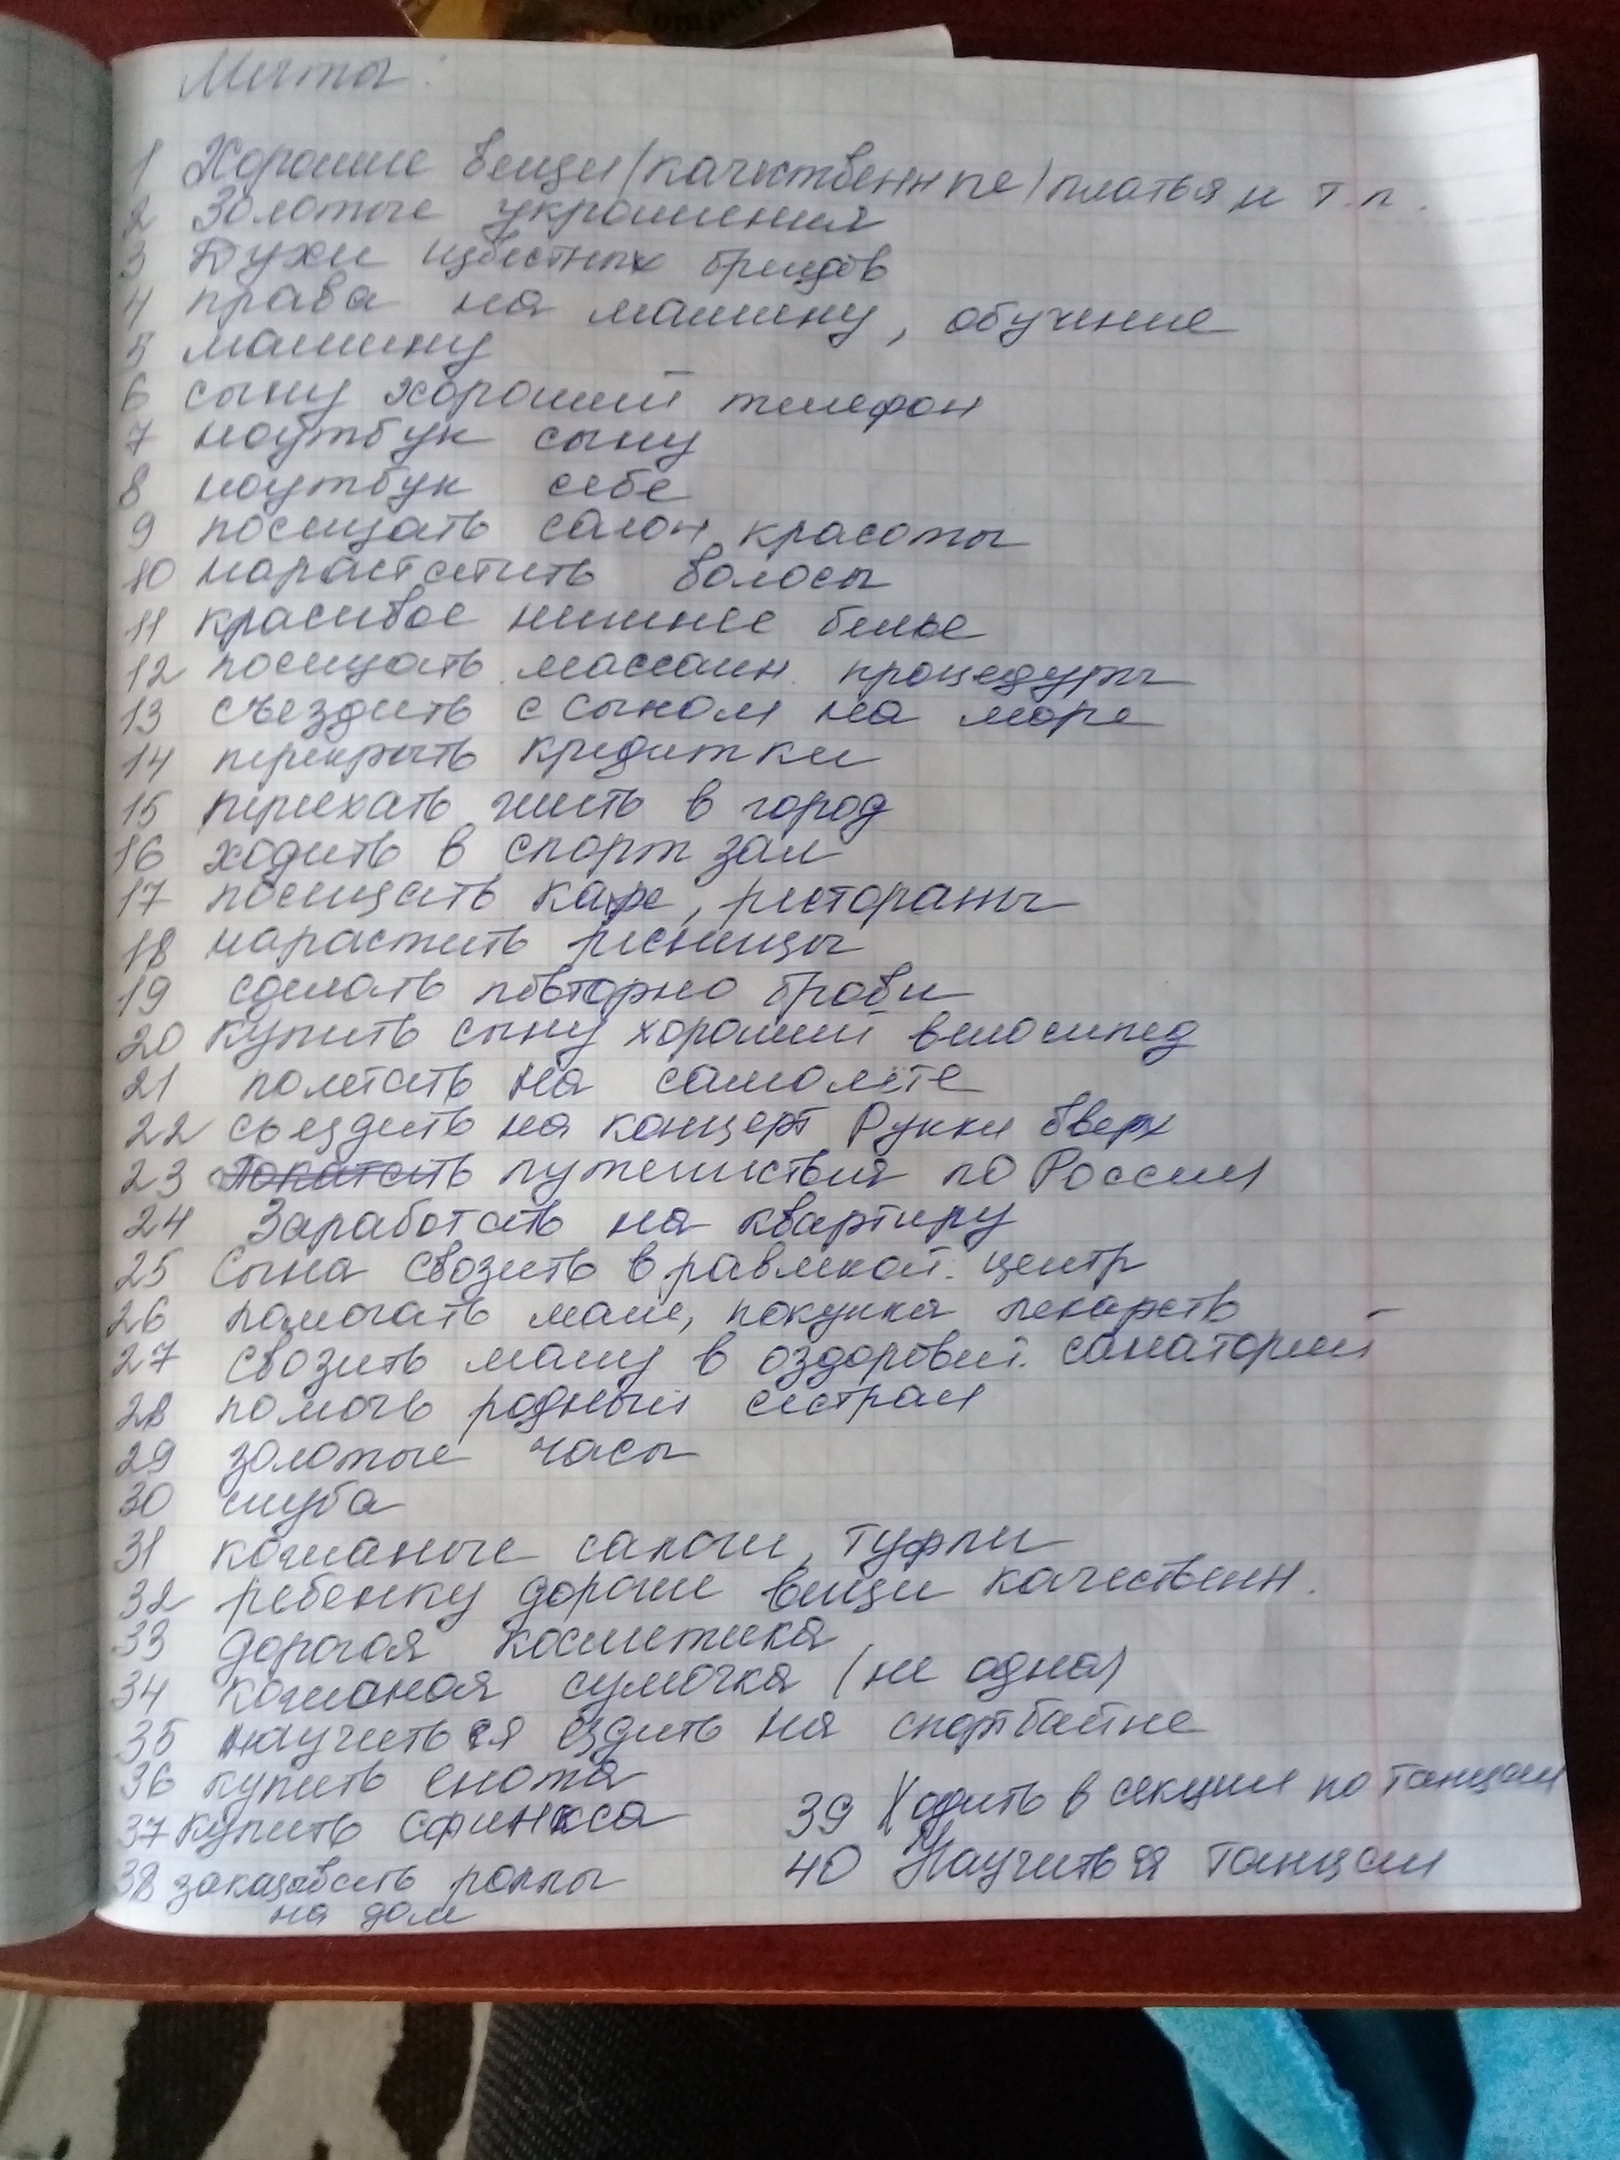 Мечты:
1 Хорошие вещи (качественные) платья и т.п.
2 Золотые украшения
3 Духи известных брендов
4 права на машину, обучение
5 машину
6 сыну хороший телефон
7 ноутбук сыну
8 ноутбук себе
9 посещать салон красоты
10 нарастить волосы
11 красивое нижнее белье
12 посещать массажн. процедуры
13 съездить с сыном на море
14 перекрыть кредитки
15 переехать жить в город
16 ходить в спорт зал
17 посещать кафе, рестораны
18 нарастить ресницы
19 сделать повторно брови
20 купить сыну хороший велосипед
21 полетать на самолёте
22 сьездить на концерт Рукки вверх
23 путешествия по России
24 Заработать на квартиру
25 Сына свозить в развлекат. центр
26 помогать маме, покупка лекарств
27 свозить маму в оздоровит. санаторий
28 помочь родным сестрам
29 золотые часы
30 шуба
31 кожаные сапоги, туфли
32 ребенку дорогие вещи качественн.
33 дорогая косметика
34 кожаная сумочка (не одна)
35 научиться ездить на спортбайке
36 купить енота
37 купить сфинкса
38 заказывать роллы
на дом
39 Ходить в секцию по танцам
40 Научиться танцам